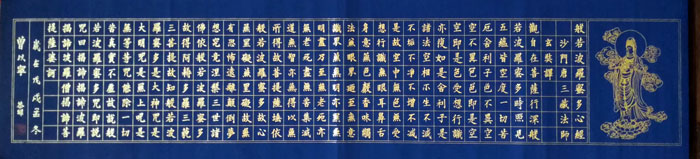 般若波羅蜜多心經
沙門唐三藏法師
玄奘譯
觀自在菩薩行深般
若波羅蜜多時照見
五蘊皆空度一切苦
厄舍利子色不異空
空不異色色即是空
空即是色受想行識
亦復如是舍利子是
諸法空相不生不滅
不垢不淨不增不減
是故空中無色無受
想行識無眼耳鼻舌
身意無色聲香味觸
法無眼界乃至無意
識界無無明亦無無
明盡乃至無老死亦
無老死盡無苦集滅
道無智亦無得以無
所得故菩提薩埵依
般若波羅蜜多故心
無罣礙無罣礙故無
有恐怖遠離顛倒夢
想究竟涅槃三世諸
佛依般若波羅蜜多
故得阿耨多羅三藐
三菩提故知般若波
羅蜜多是大神咒是
大明咒是無上咒是
無等等咒能除一切
苦真實不虛故說般
若波羅蜜多咒即說
咒曰揭諦揭諦波羅
揭諦波羅僧揭諦菩
提薩婆訶
歲在戊戌孟冬